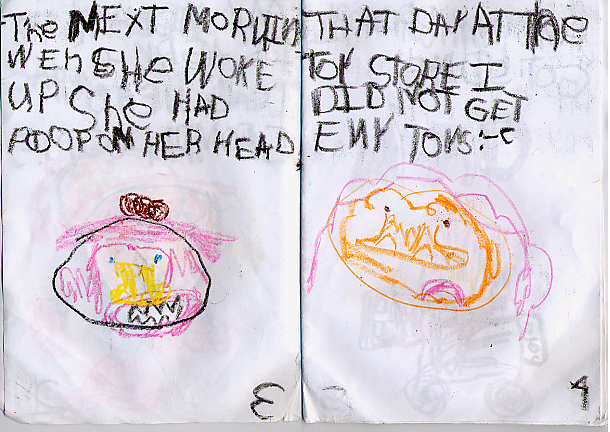 The NEXT MORUIN
WEN SHe WOKE
UP She HAD
POOP ON HER HEAD
3
THAT DAY AT THe
TOY STORE I
DID NOT GET
ENY TOYS:-c
4